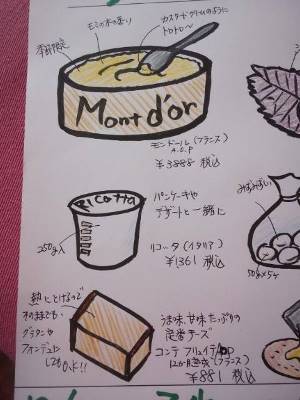 モミの木の香り
カスタードクリームのように
トロトロ〜
季節限定
Mont d'or
モンドール(フランス)
A.O.P
¥3888 税込
RICOTTA
パンケーキや
デザートと一緒に
250g入
リコッタ(イタリア)
¥1361 税込
みずみずしい
50g×5ヶ
熱にとけるので
そのままでも
グラタンや
フォンデュに
してもOK!!
うま味、甘味たっぷりの
定番チーズ
コンテ フリュイテ AOP
12か月熟成(フランス)
¥881 税込